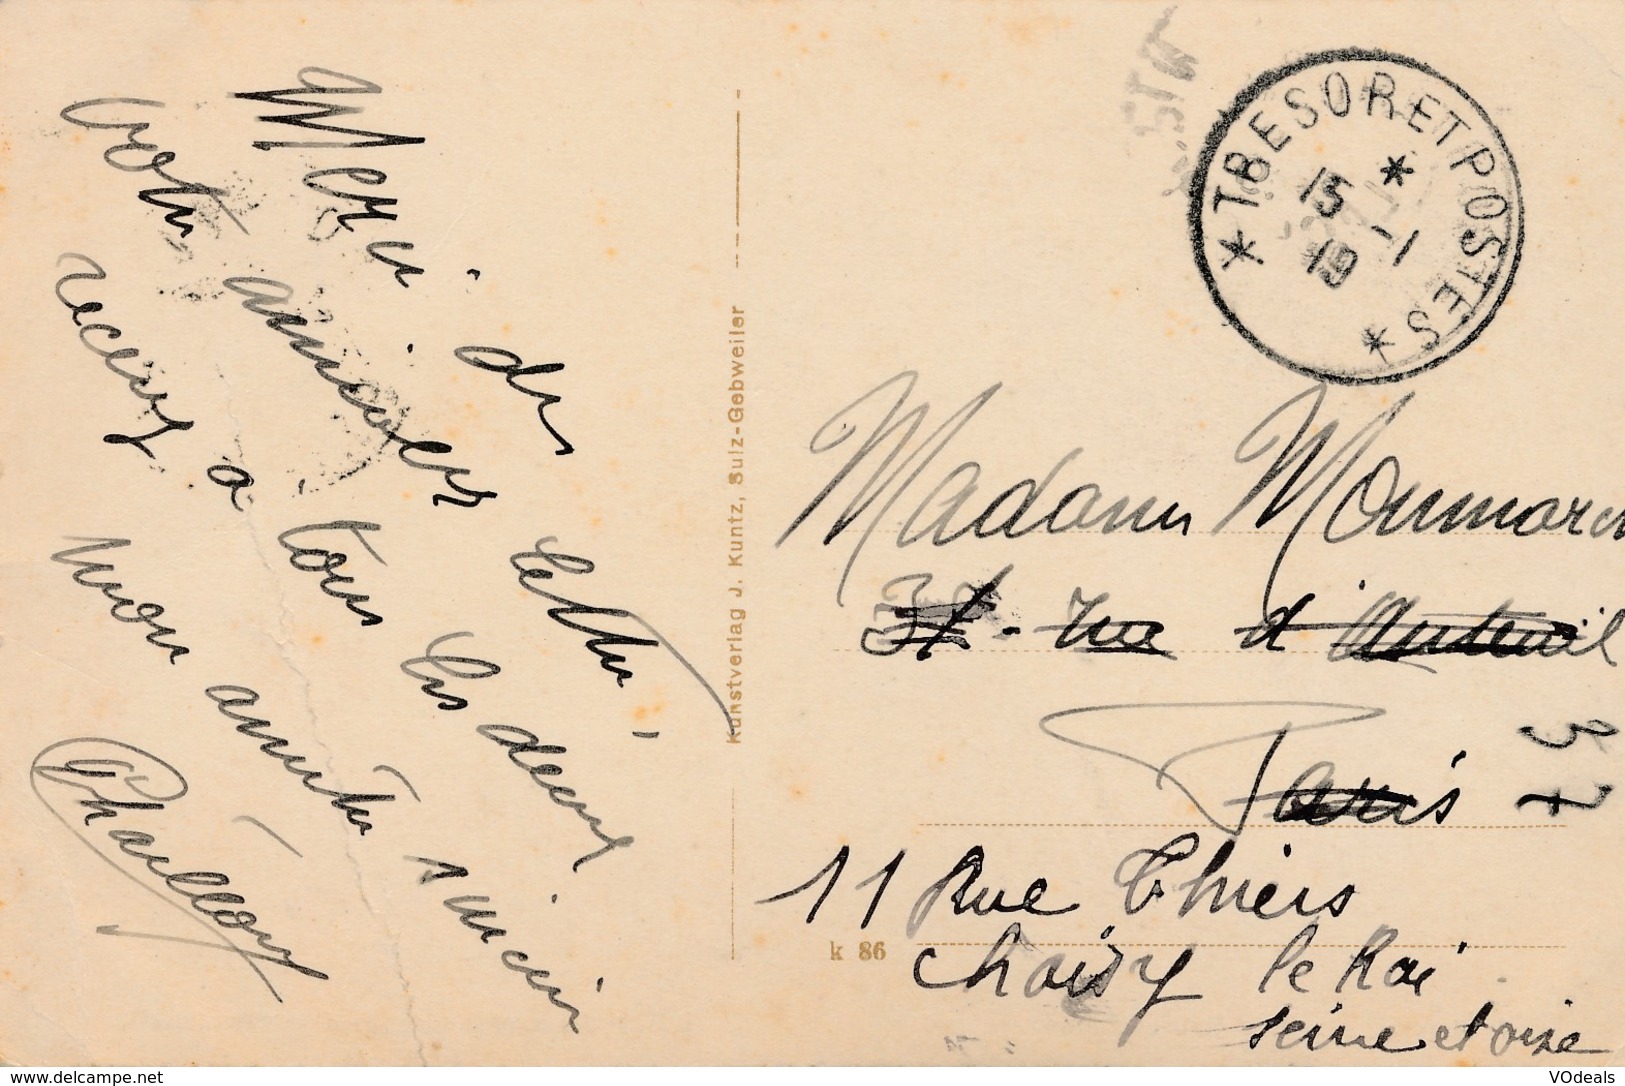 Merci de
votre aimable lettre,
recevez à tous les deux
mon amitié sincère
Kunstverlag J. Kuntz, Sulz-Gebweiler
* TRESOR ET POSTES *
*
15 -1
19
Madame
37 - rue d'Auteuil
Paris
37
11 Rue Thiers
Choisy le Roi
seine et oise
k 86
www.delcampe.net
VOdeals